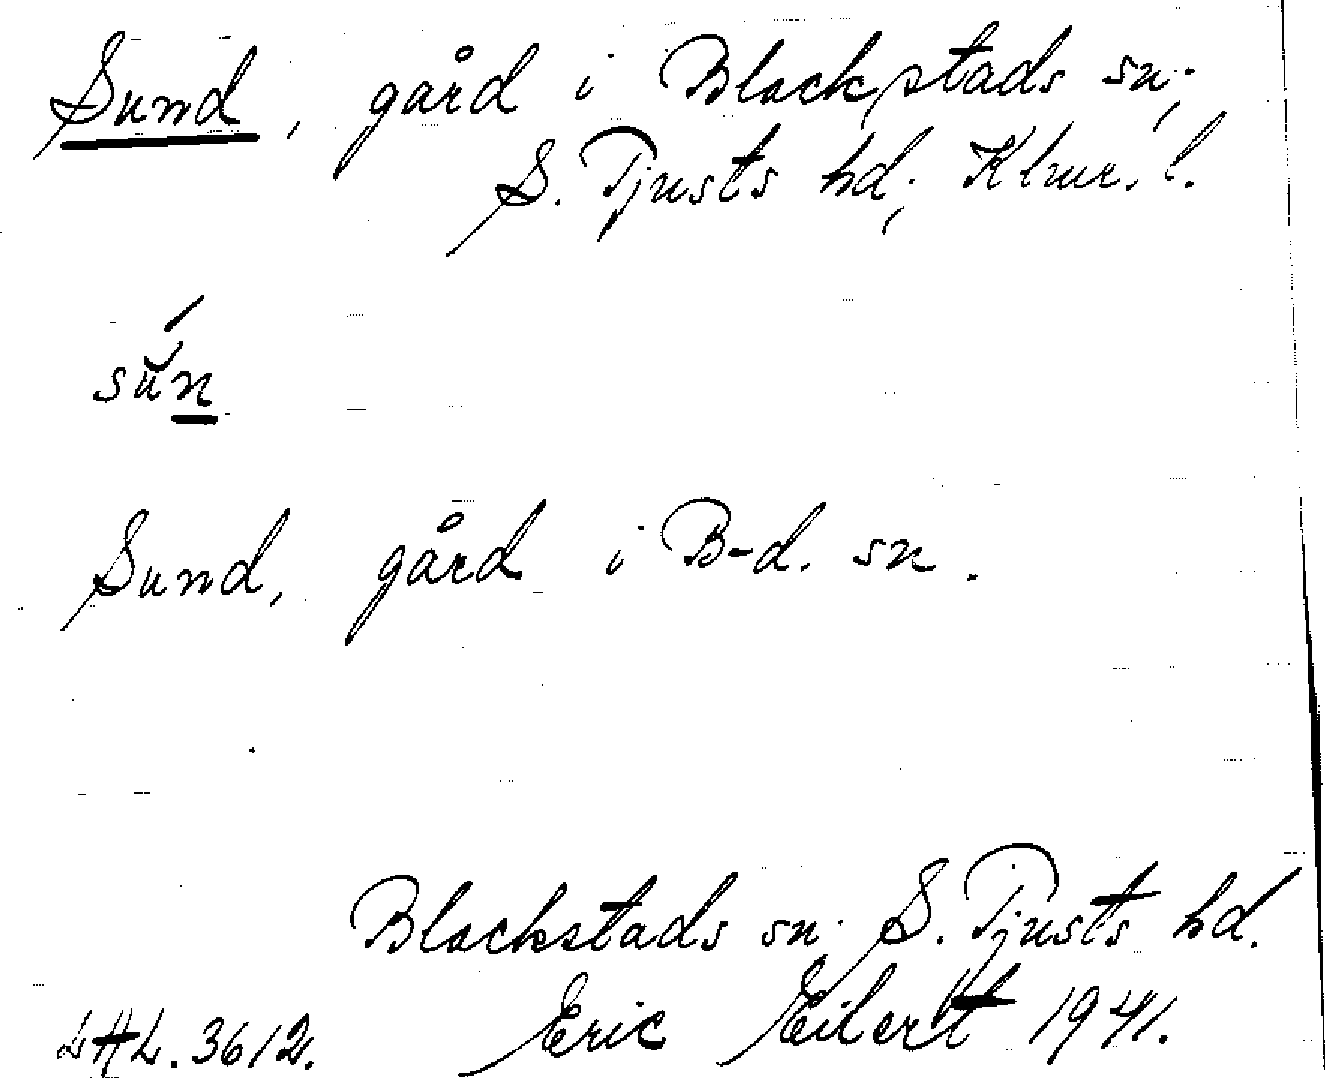 Sund, gård i Blackstads sn;
S. Tjusts hd; Klmr. l.
sún
Sund, gård i B-d. sn.
Blackstads sn. S. Tjusts hd.
LAL. 3612. Eric Eilert 1941.